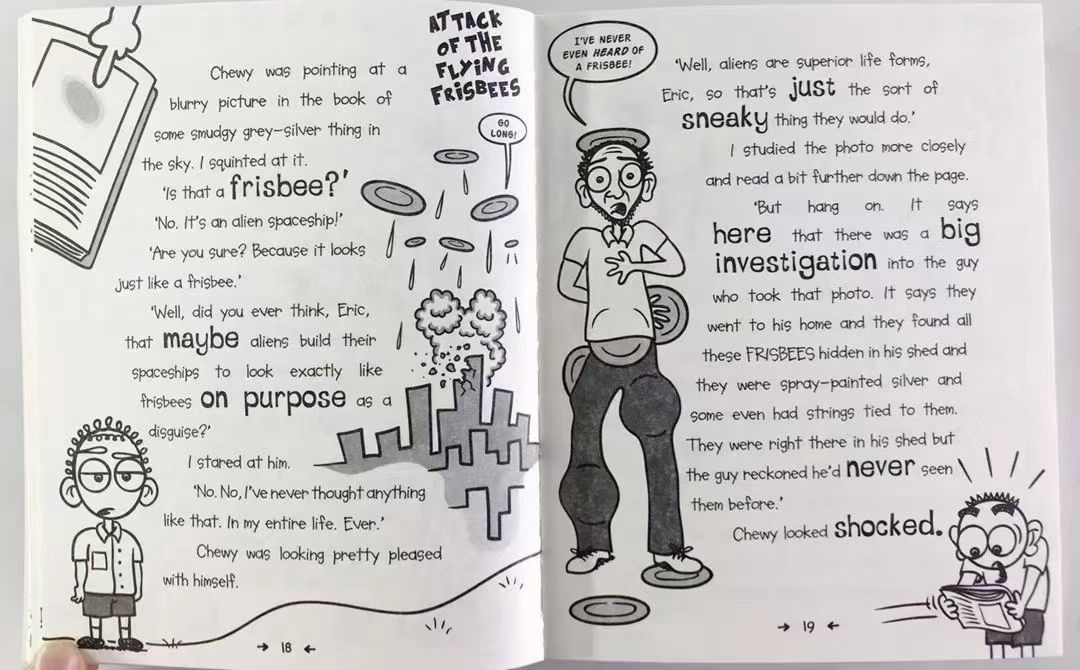 ATTACK
OF THE
FLYING
FRISBEES
Chewy was pointing at a
blurry picture in the book of
some smudgy grey-silver thing in
the sky. I squinted at it.
'Is that a frisbee?'
'No. It's an alien spaceship!'
'Are you sure? Because it looks
just like a frisbee.'
'Well, did you ever think, Eric,
that maybe aliens build their
spaceships to look exactly like
frisbees on purpose as a
disguise?'
I stared at him.
'No. No, I've never thought anything
like that. In my entire life. Ever.'
Chewy was looking pretty pleased
with himself.
GO
LONG!
18
I'VE NEVER
EVEN HEARD OF
A FRISBEE!
'Well, aliens are superior life forms,
Eric, so that's just the sort of
sneaky thing they would do.'
I studied the photo more closely
and read a bit further down the page.
'But hang on. It says
here that there was a big
investigation into the guy
who took that photo. It says they
went to his home and they found all
these FRISBEES hidden in his shed and
they were spray-painted silver and
some even had strings tied to them.
They were right there in his shed but
the guy reckoned he'd never seen
them before.'
Chewy looked shocked.
19